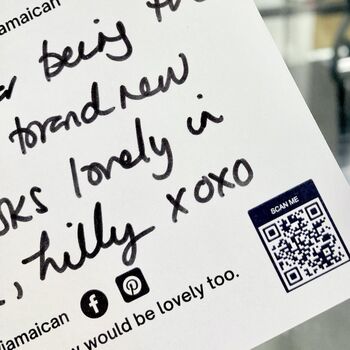 iamaican
being
brand new
lovely in
, hilly xoxo
SCAN ME
iamaican
would be lovely too.